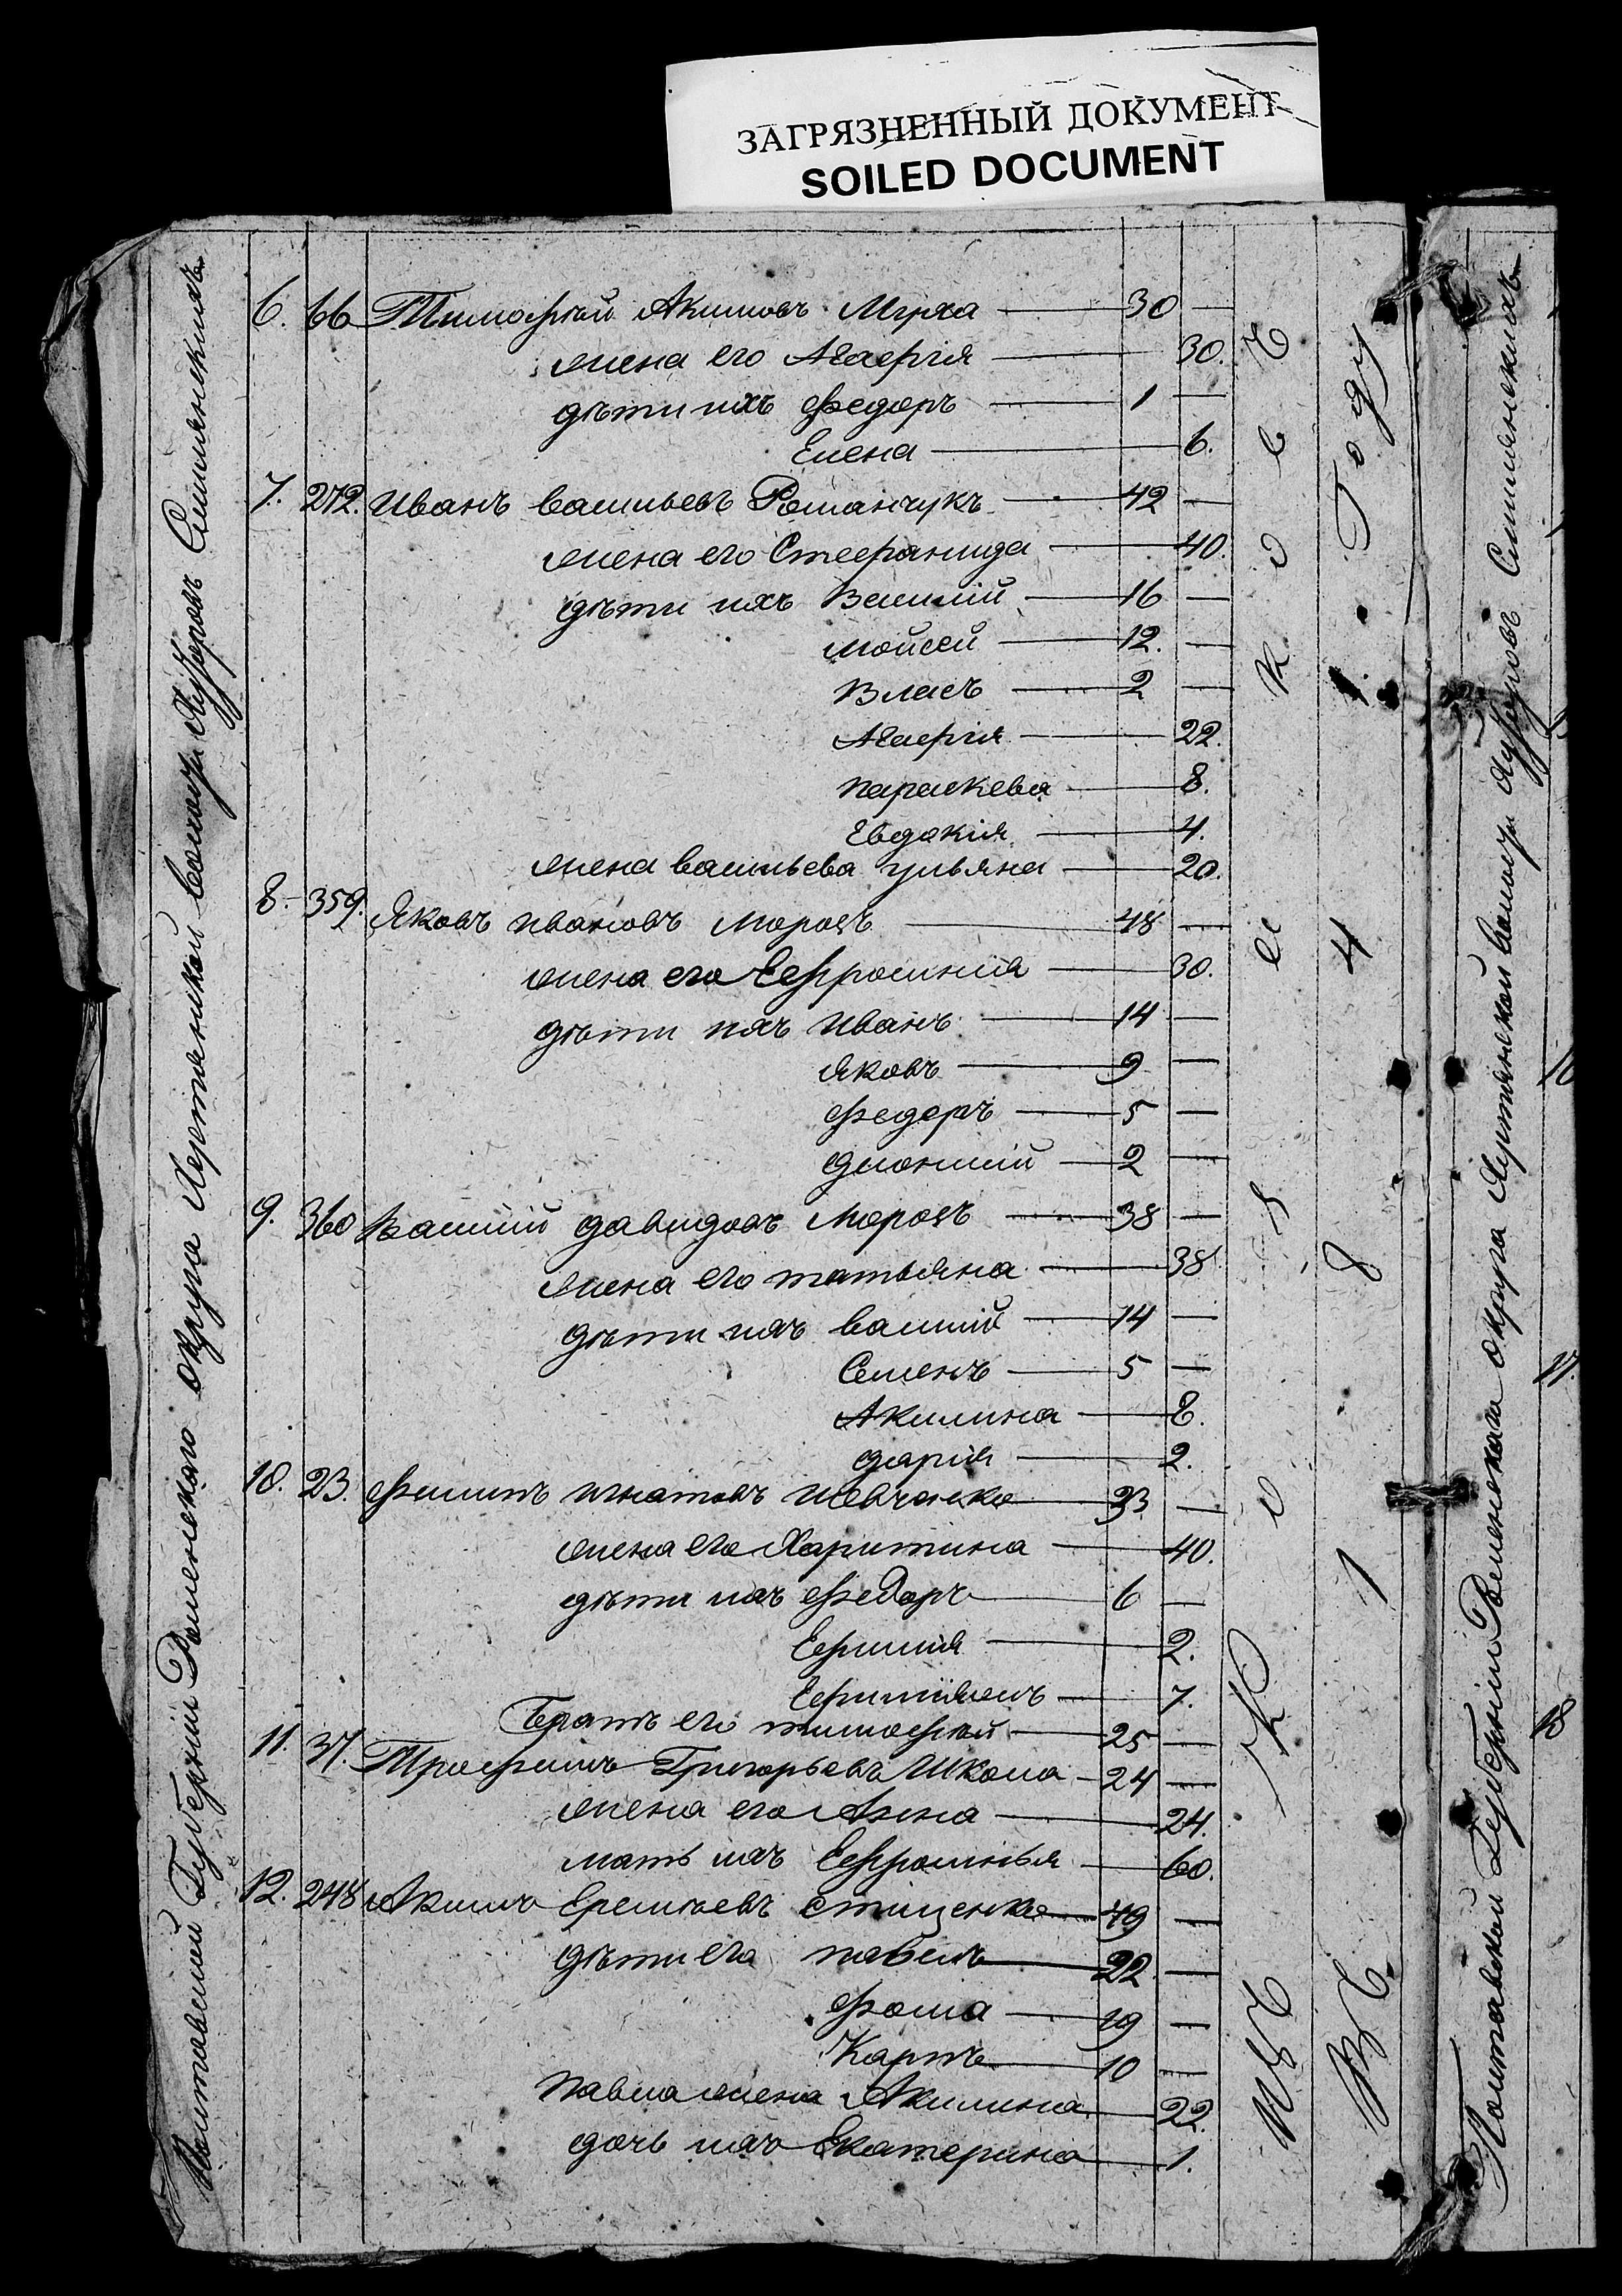 ЗАГРЯЗНЕННЫЙ ДОКУМЕНТ
SOILED DOCUMENT
Полтавской Губерніи Роменскаго округа Хертянской волости
6. 66 Тимофѣй Акимовъ Муха — 30 —
жена его Агафія — 30.
дѣти ихъ Федоръ — 1 —
Елена — 6.
7. 272. Иванъ Васильевъ Романчукъ — 42 —
жена его Стефанида — 40.
дѣти ихъ Василій — 16 —
Мойсей — 12. —
Власъ — 2 —
Агафія — 22.
Параскева — 8.
Евдокія — 4.
жена Васильева Ульяна — 20.
8. 359. Яковъ Ивановъ Морозъ — 48 —
жена его Ефросинія — 30.
дѣти ихъ Иванъ — 14 —
Яковъ — 9 —
Федоръ — 5 —
Діонисій — 2 —
9. 360 Василій Давидовъ Морозъ — 38 —
жена его Татьяна — 38
дѣти ихъ Василій — 14 —
Семенъ — 5 —
Акилина — 8.
Дарія — 2.
10. 23. Филипъ Игнатовъ Шевченко — 33 —
жена его Харитина — 40.
дѣти ихъ Федоръ — 6 —
Ефимія — 2.
7.
Братъ его Тимофѣй — 25 —
11. 37. Трофимъ Григорьевъ Школа — 24 —
жена его Анна — 24.
мать ихъ Ефросинья — 60.
12. 248 Акимъ Еремѣевъ Стищенко — 49 —
дѣти его Павелъ — 22 —
Фома — 19 —
Карпъ — 10 —
Павла жена Акилина — 22.
дочь ихъ Екатерина — 1.
Въ 1 8 4 1. Году
Полтавской Губерніи Роменскаго округа Хертянской волости
17.
18